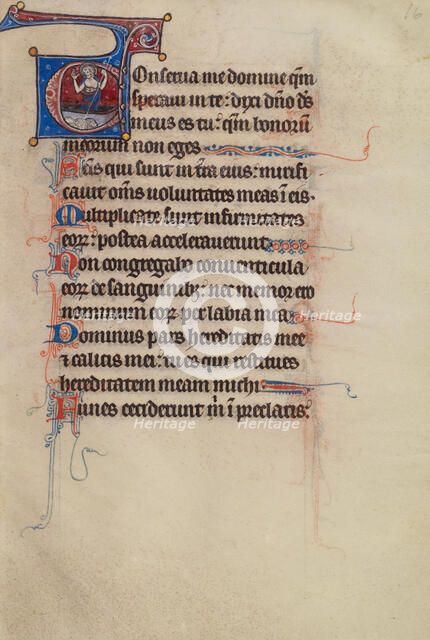 16
Conserva me domine qm
speravi in te: dixi dño ds
meus es tu: qm bonorū
meorum non eges
Scis qui sunt in tra eius: mirifi
cavit oms voluntates meas ī eis.
Multiplicate sunt infirmitates
eoꝝ: postea acceleraverunt
Non congregabo conventicula
eoꝝ de sanguinibꝫ: nec memor ero
nominum eoꝝ per labia mea
Dominus pars hereditatis mee
⁊ calicis mei: tu es qui restitues
hereditatem meam michi
Funes ceciderunt m̄ ī preclaris:
Heritage Heritage
Heritage
Heritage Heritage